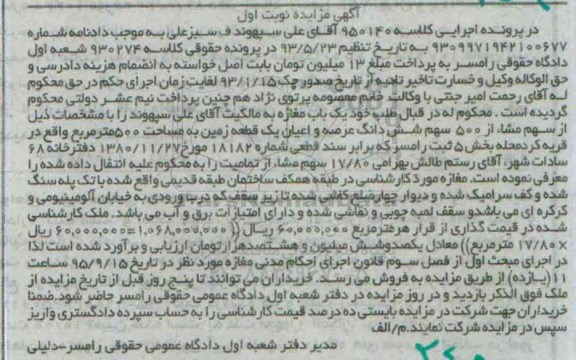 آگهی مزایده نوبت اول
در پرونده اجرایی کلاسه ۹۵۰۱۴۰ آقای علی سپهوند ف سبزعلی به موجب دادنامه شماره
۹۳۰۹۹۷۱۹۴۲۱۰۰۶۷۷ به تاریخ تنظیم ۹۳/۵/۲۳ در پرونده حقوقی کلاسه ۹۳۰۲۷۴ شعبه اول
دادگاه حقوقی رامسر به پرداخت مبلغ ۱۳ میلیون تومان بابت اصل خواسته به انضمام هزینه دادرسی و
حق الوکاله وکیل و خسارت تاخیر تادیه از تاریخ صدور چک ۹۳/۱/۱۵ لغایت زمان اجرای حکم در حق محکوم
له آقای رحمت امیر جنتی با وکالت خانم معصومه پرتوی نژاد هم چنین پرداخت نیم عشر دولتی محکوم
گردیده است . محکوم له در قبال طلب خود یک باب مغازه به مالکیت آقای علی سپهوند را با مشخصات ذیل
از سهم مشاء از ۵۰۰ سهم شش دانگ عرصه و اعیان یک قطعه زمین به مساحت ۵۰۰ مترمربع واقع در
قریه کردمحله بخش ۵ ثبت رامسر که برابر سند قطعی شماره ۱۸۱۸۲ مورخ ۱۳۸۰/۱۱/۲۷ دفترخانه ۶۸
سادات شهر، آقای رستم طالش بهرامی ۱۷/۸۰ سهم مشاء از تمامیت را به محکوم علیه انتقال داده شده را
معرفی نموده است. مغازه مورد کارشناسی در طبقه همکف ساختمان طبقه قدیمی واقع شده با تک پله سنگ
شده و کف سرامیک شده و دیوار چهار ضلع کاشی شده تا زیر سقف که درب ورودی به خیابان آلومینیومی و
کرکره ای می باشد و سقف لمبه چوبی و نقاشی شده و دارای امتیازات برق و آب می باشد. ملک کارشناسی
شده در قیمت گذاری از قرار هر مترمربع ۶۰,۰۰۰,۰۰۰ ریال (( ۱,۰۶۸,۰۰۰,۰۰۰=۶۰,۰۰۰,۰۰۰ ریال
× ۱۷/۸۰ مترمربع)) معادل یکصد و شش میلیون و هشتصد هزار تومان ارزیابی و برآورد شده است لذا
در اجرای مبحث اول از فصل سوم قانون اجرای احکام مدنی مغازه مورد نظر در تاریخ ۹۵/۹/۱۵ ساعت
۱۱(یازده) از طریق مزایده به فروش می رسد. خریداران می توانند تا پنج روز قبل از تاریخ مزایده از
ملک فوق الذکر بازدید و در روز مزایده در دفتر شعبه اول دادگاه عمومی حقوقی رامسر حاضر شود. ضمنا
خریداران جهت شرکت در مزایده بایستی ده درصد قیمت کارشناسی را به حساب سپرده دادگستری واریز
سپس در مزایده شرکت نمایند. م/الف
مدیر دفتر شعبه اول دادگاه عمومی حقوقی رامسر-دلیلی